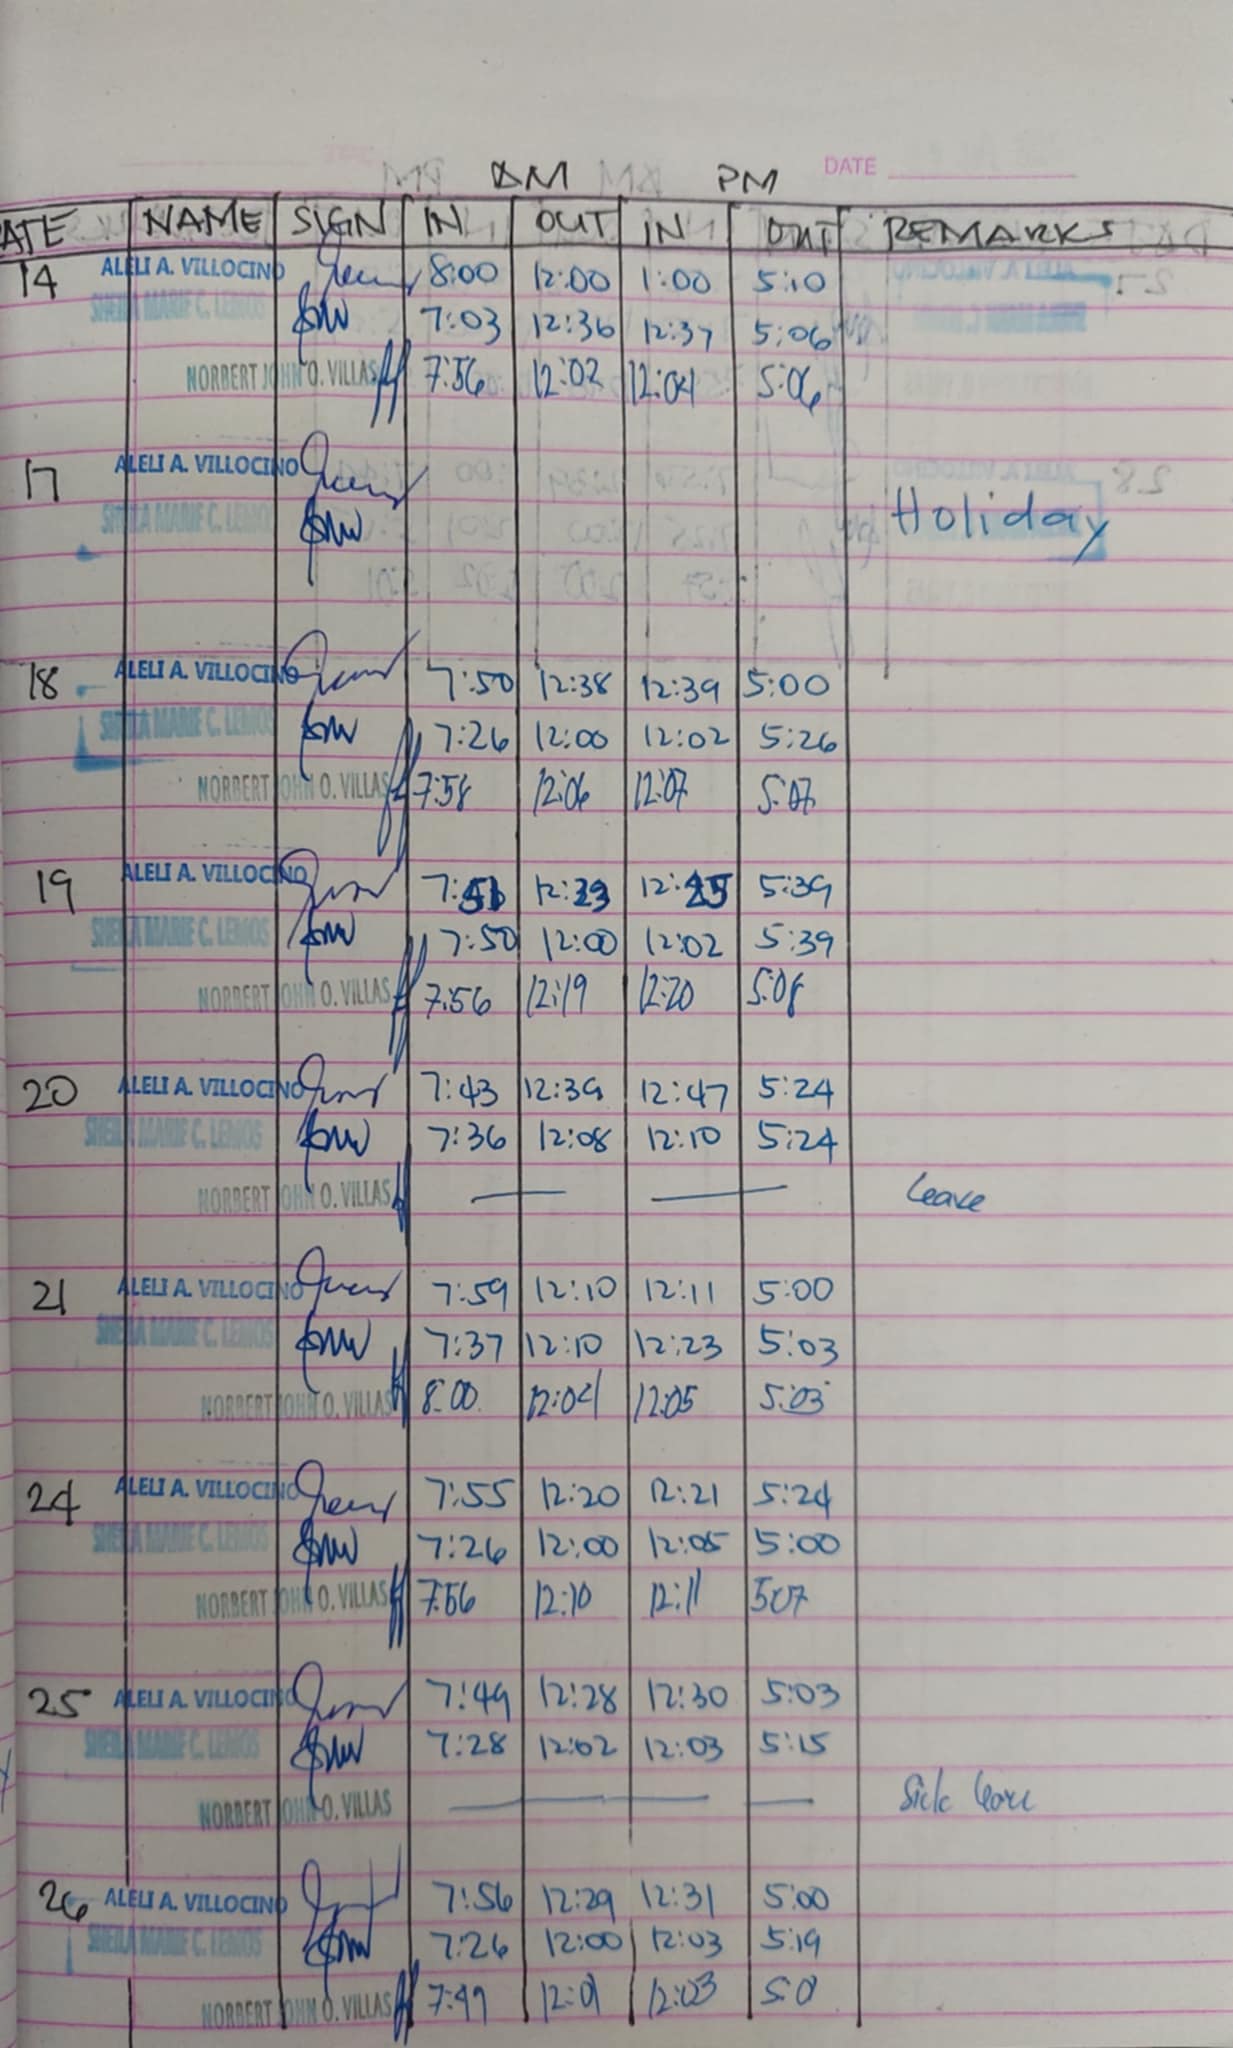 DATE
AM PM
DATE NAME SIGN IN OUT IN OUT REMARKS
14 ALELI A. VILLOCINO 8:00 12:00 1:00 5:10
SHEILA MARIE C. LEMOS 7:03 12:36 12:37 5:06
NORBERT JOHN O. VILLAS 7:56 12:02 12:04 5:06
17 ALELI A. VILLOCINO
SHEILA MARIE C. LEMOS Holiday
18 ALELI A. VILLOCINO 7:50 12:38 12:39 5:00
SHEILA MARIE C. LEMOS 7:26 12:00 12:02 5:26
NORBERT JOHN O. VILLAS 7:58 12:06 12:07 5:07
19 ALELI A. VILLOCINO 5:39
SHEILA MARIE C. LEMOS 7:50 12:00 12:02 5:39
NORBERT JOHN O. VILLAS 7:56 12:19 12:20 5:08
20 ALELI A. VILLOCINO 7:43 12:39 12:47 5:24
SHEILA MARIE C. LEMOS 7:36 12:08 12:10 5:24
NORBERT JOHN O. VILLAS Leave
21 ALELI A. VILLOCINO 7:59 12:10 12:11 5:00
SHEILA MARIE C. LEMOS 7:37 12:10 12:23 5:03
NORBERT JOHN O. VILLAS 8:00 12:04 12:05 5:03
24 ALELI A. VILLOCINO 7:55 12:20 12:21 5:24
SHEILA MARIE C. LEMOS 7:26 12:00 12:05 5:00
NORBERT JOHN O. VILLAS 7:56 12:10 12:11 507
25 ALELI A. VILLOCINO 7:49 12:28 12:30 5:03
SHEILA MARIE C. LEMOS 7:28 12:02 12:03 5:15
NORBERT JOHN O. VILLAS Sick leave
26 ALELI A. VILLOCINO 7:56 12:29 12:31 5:00
SHEILA MARIE C. LEMOS 7:26 12:00 12:03 5:19
NORBERT JOHN O. VILLAS 7:49 12:01 12:03